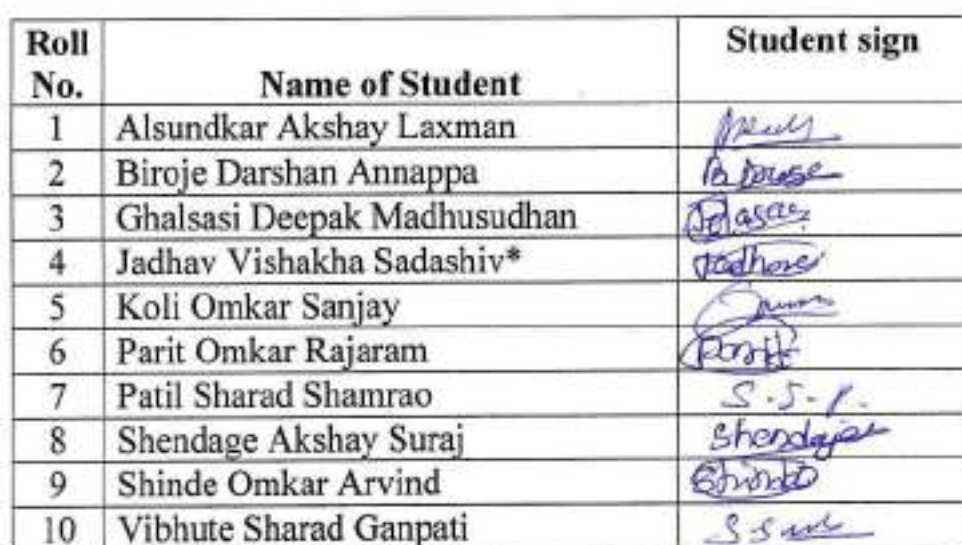 Roll No. Name of Student Student sign
1 Alsundkar Akshay Laxman
2 Biroje Darshan Annappa
3 Ghalsasi Deepak Madhusudhan
4 Jadhav Vishakha Sadashiv* Jadhav
5 Koli Omkar Sanjay
6 Parit Omkar Rajaram
7 Patil Sharad Shamrao S.S.P.
8 Shendage Akshay Suraj Shendage
9 Shinde Omkar Arvind
10 Vibhute Sharad Ganpati